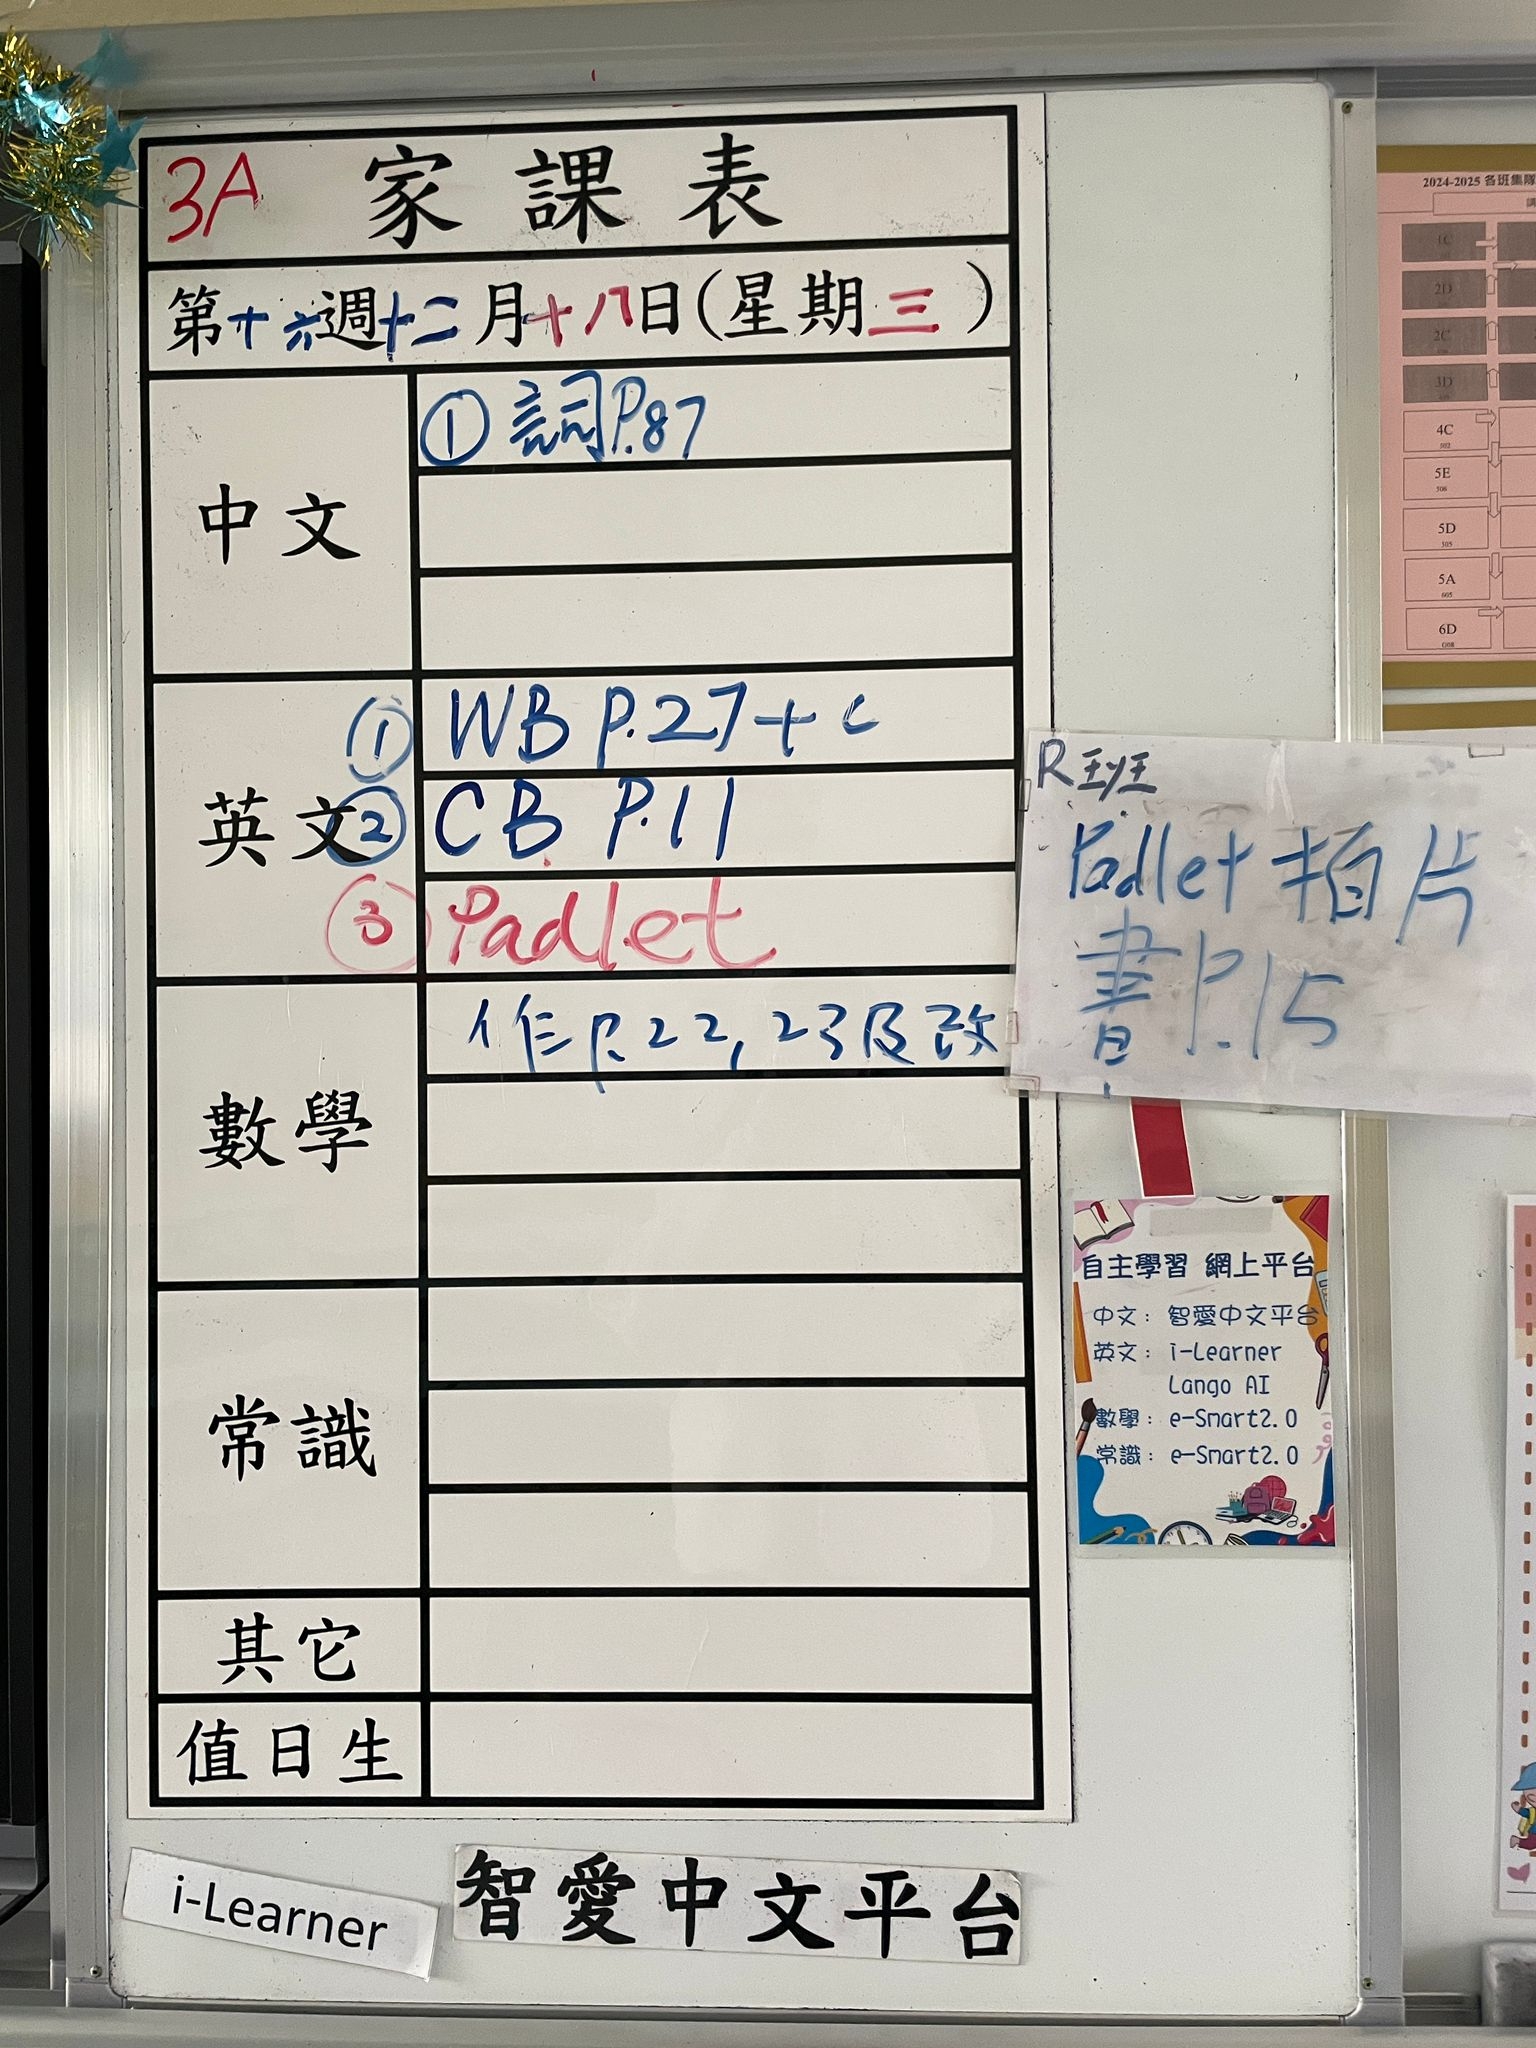 3A 家課表
第十六週十二月十八日(星期三)
中文
① 詞P.87
英文
① WB P.27+c
② CB P.11
③ Padlet
數學
作P.22,23及改
常識
其它
值日生
i-Learner
智愛中文平台
R班
Padlet 拍片
書P.15
自主學習 網上平台
中文：智愛中文平台
英文：i-Learner
Lango AI
數學：e-Smart2.0
常識：e-Smart2.0
2024-2025 各班集隊
1C
2D
2C
3D
4C
502
5E
506
5D
505
5A
605
6D
G08